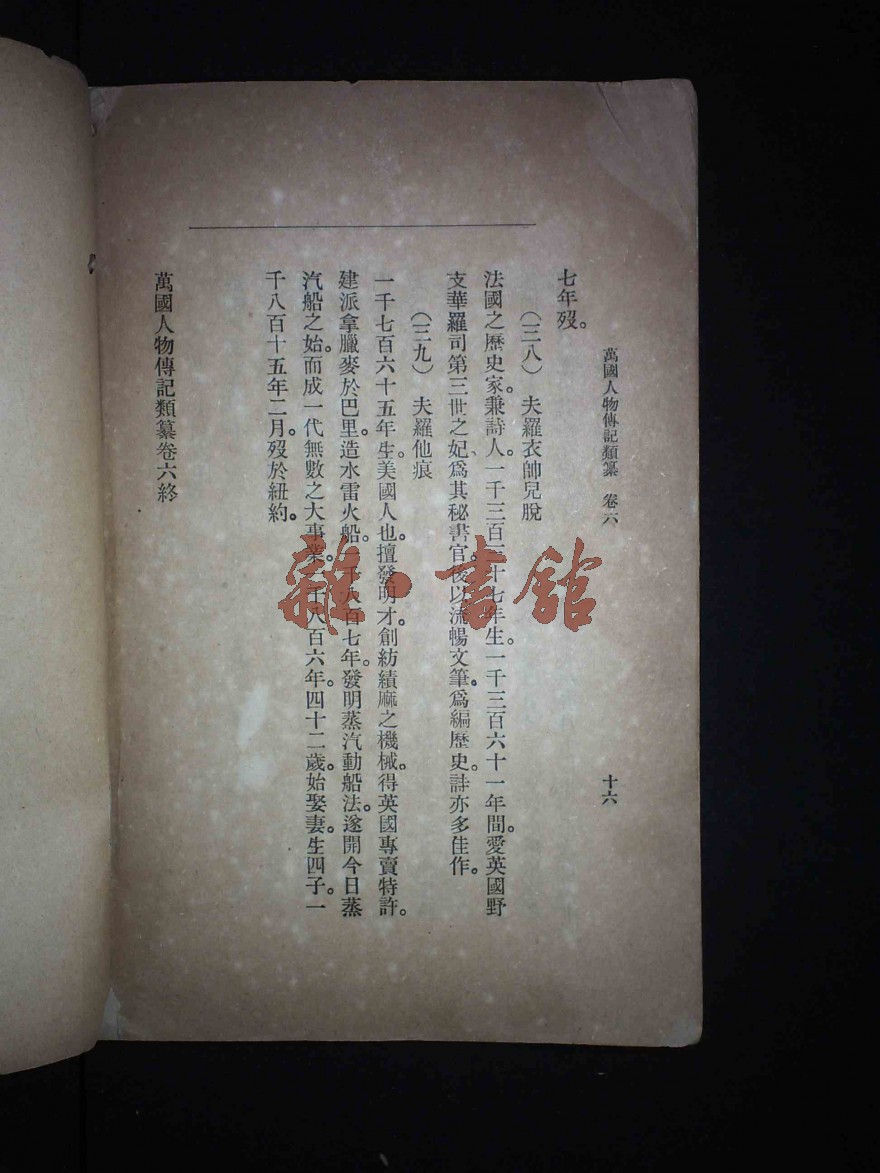 萬國人物傳記類纂 卷六
十六
七年歿。
(三八) 夫羅衣帥兒脫
法國之歷史家。兼詩人。一千三百三十七年生。一千三百六十一年間。愛英國野
支華羅司第三世之妃、爲其秘書官。後以流暢文筆。爲編歷史。詩亦多佳作。
(三九) 夫羅他痕
一千七百六十五年生。美國人也。擅發明才。創紡績麻之機械。得英國專賣特許。
建派拿臘麥於巴里。造水雷火船。一千八百七年。發明蒸汽動船法。遂開今日蒸
汽船之始。而成一代無數之大事業。一千八百六年。四十二歲。始娶妻。生四子。一
千八百十五年二月。歿於紐約。
萬國人物傳記類纂卷六終
雜·書館